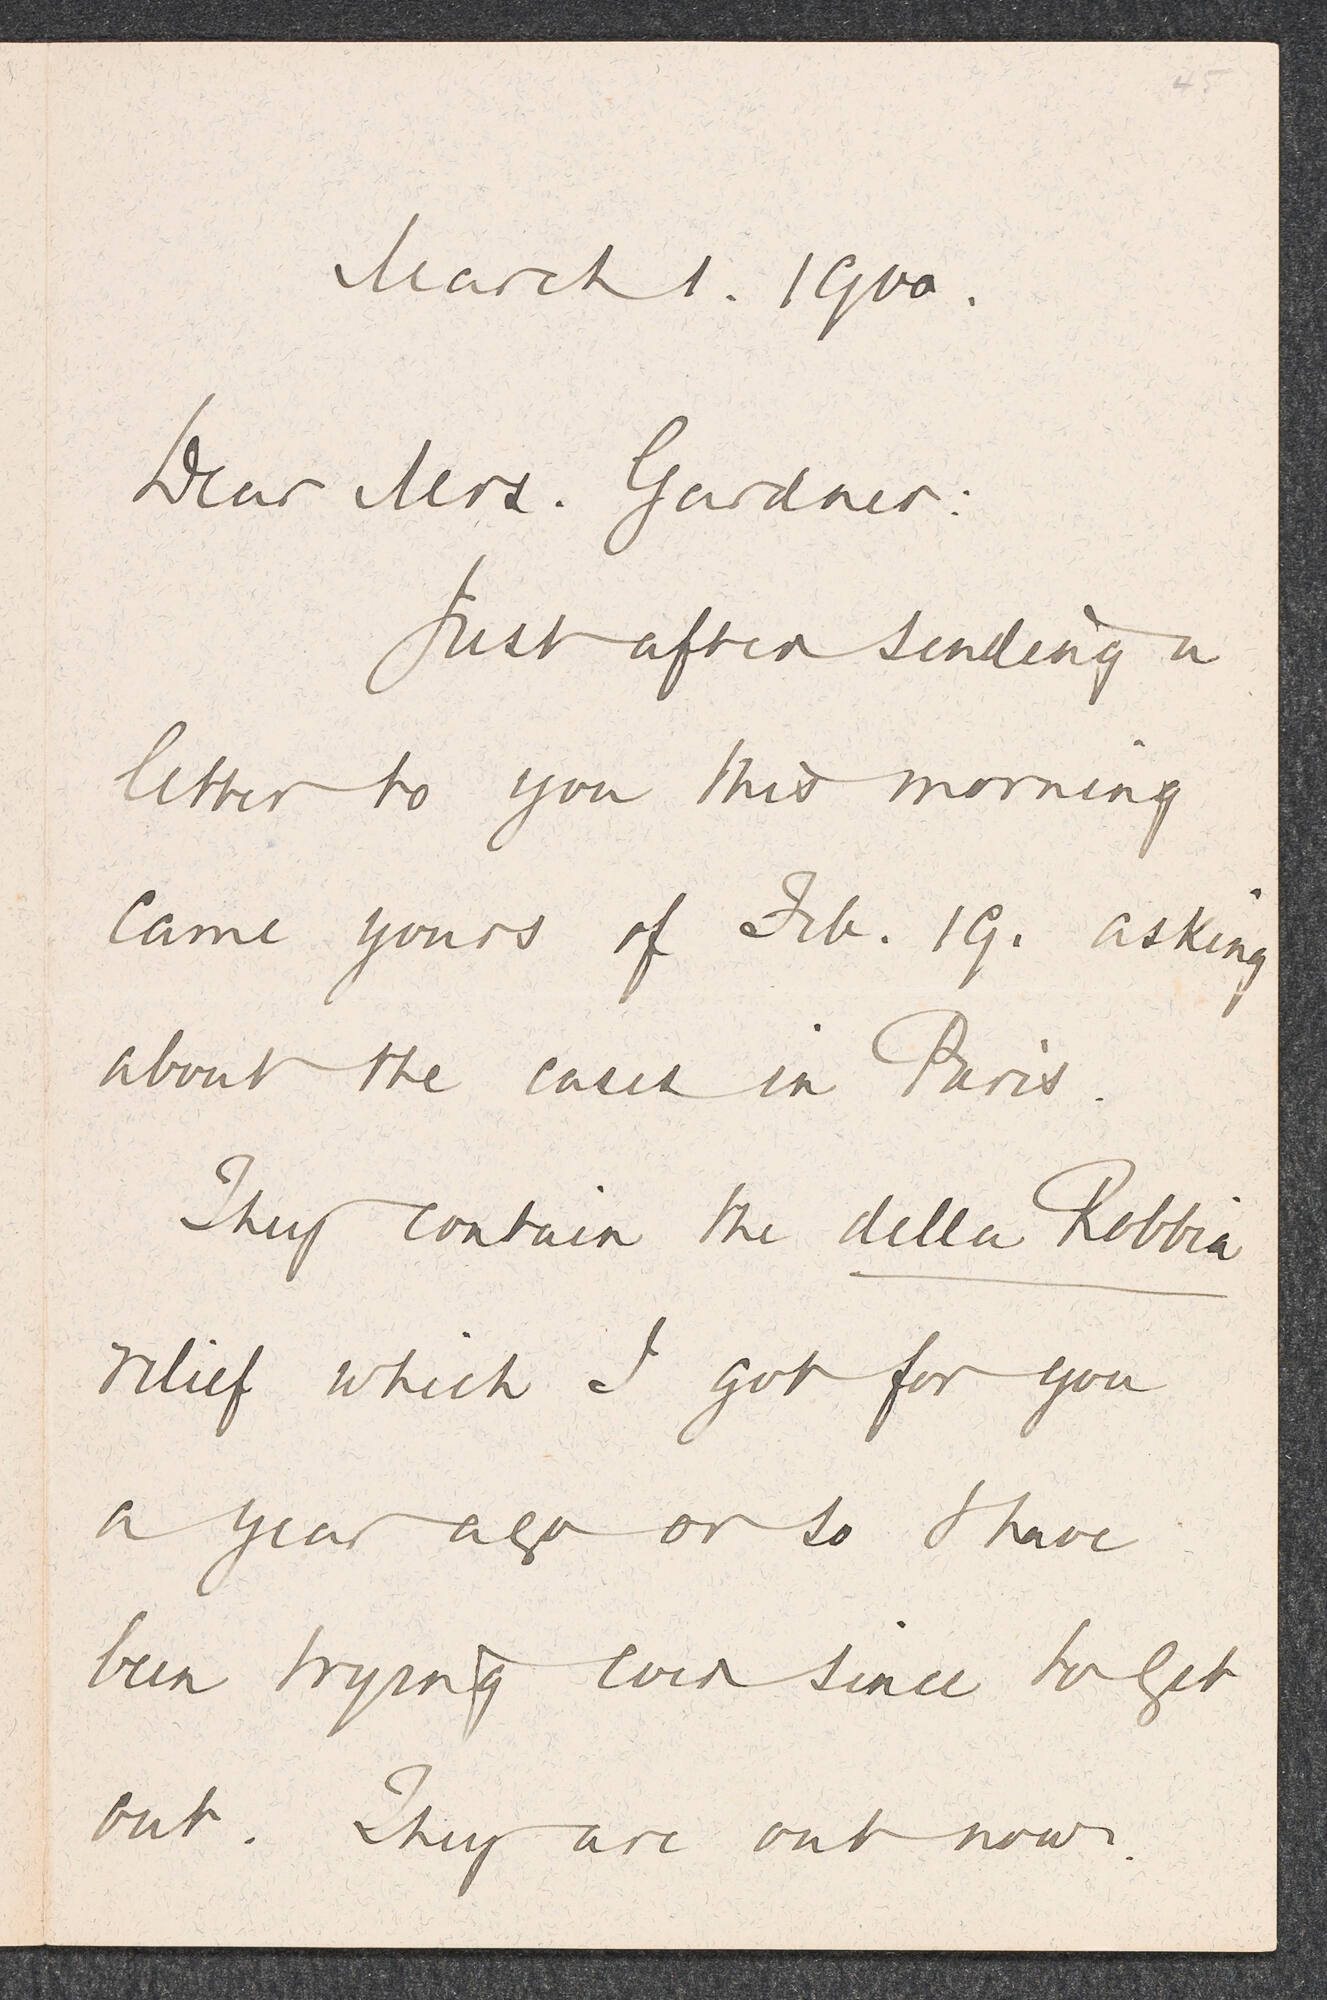 45
March 1. 1900.
Dear Mrs. Gardner:
Just after sending a
letter to you this morning
came yours of Feb. 19. asking
about the cases in Paris.
They contain the della Robbia
relief which I got for you
a year ago or so & have
been trying ever since to get
out. They are out now.